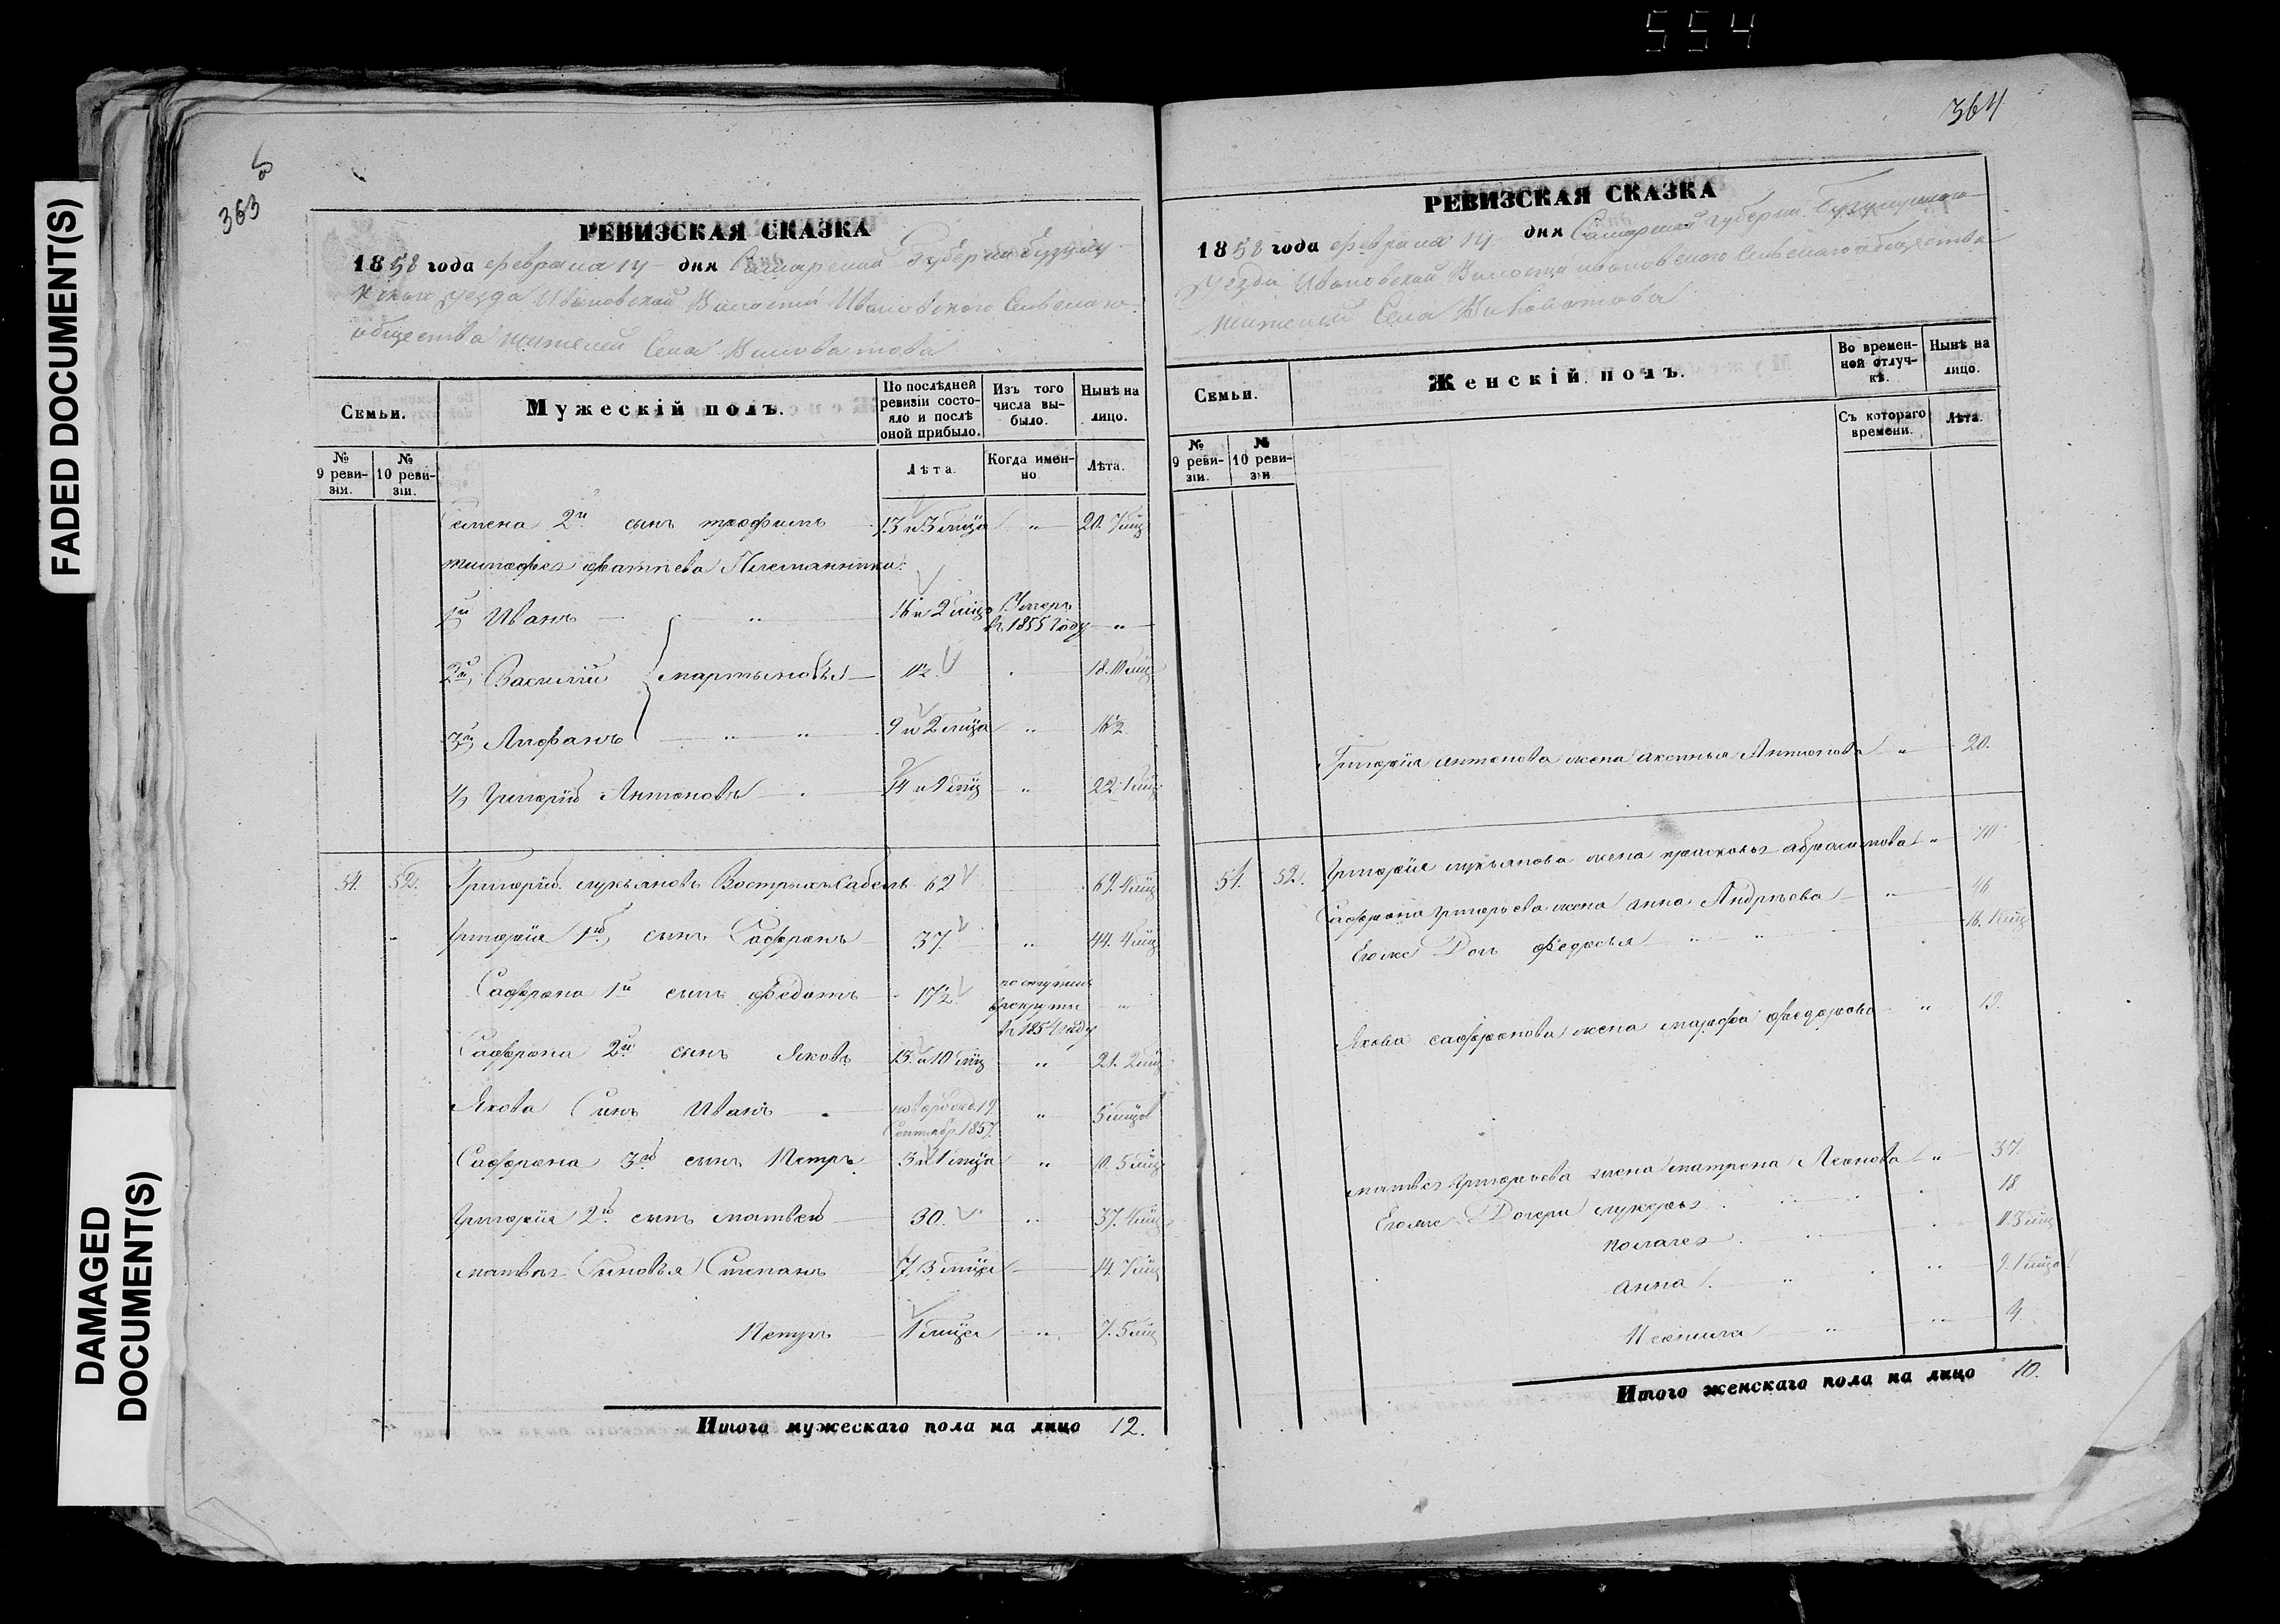 554
FADED DOCUMENT(S)
DAMAGED
DOCUMENT(S)
363
РЕВИЗСКАЯ СКАЗКА
1858 года февраля 14 дня Самарской Губернии Бузулу
кскаго уезда Ивановской Волости Ивановского Сельскаго
общества жителей Села Виловатова
Семьи.
Мужескій полъ.
По послѣдней ревизіи состояло и послѣ оной прибыло.
Изъ того числа выбыло.
Нынѣ на лицо.
№ 9 ревизіи.
№ 10 ревизіи.
Лѣта.
Когда именно
Лѣта.
Семена 2й сынъ трофимъ 13 и 3 мца " 20. 7 мц
тимофея фатѣева Племянники:
1й Иванъ " 16 и 2 мца Умеръ въ 1855 году "
2й Василій мартыновы 11½ 18. 10 мц
3й Анфанъ " " 9 и 2 мца " 16½
4, Григорій Антоновъ 14 и 1 мц " 22. 1 мц
54. 52. Григорій лукьяновъ Вострыхъ Сабель 62 69. 4 мц
Григорія 1й сынъ Сафронъ 37 " 44. 4 мц
Сафрона 1й сынъ федотъ 17½ поступилъ в рекруты въ 1854 году "
Сафрона 2й сынъ Яковъ 13. и 10 мц " 21. 2 мц
Якова Сынъ Иванъ новорожд. 19 Сентябр. 1857 " 5 мцов
Сафрона 3й сынъ Петръ 3 и 1 мца " 10. 5 мц
Григорія 2й сынъ матвей 30. " 37. 4 мц
матвея Сыновья Степанъ 7. 3 мца 14. 7 мц
Петръ 1 мца " 7. 5 мц
Итого мужескаго пола на лицо 12.
364
РЕВИЗСКАЯ СКАЗКА
1858 года февраля 14 дня Самарской Губернии Бузулукскаго
Уезда Ивановской Волости ивановского Сельскаго общества
жителей Села Виловатова
Семьи.
Женскій полъ.
Во временной отлучкѣ.
Нынѣ на лицо.
№ 9 ревизіи.
№ 10 ревизіи
Съ котораго времени.
Лѣта.
Григорія антонова жена аксинья Антонова " 20.
54. 52. Григорія лукьянова жена прасковья абрамова " 70
Сафрона григорьева жена анна Андрѣева " 46
Егоже Дочь федосья " " 16. 1 мц
Якова сафронова жена марфа федорова " 19.
матвея Григорьева жена матрена Леонова " 37.
Егоже Дочери лукерья 18
Пелагея 11. 3 мц
анна " 9. 1 мца
" 4
Итого женскаго пола на лицо 10.